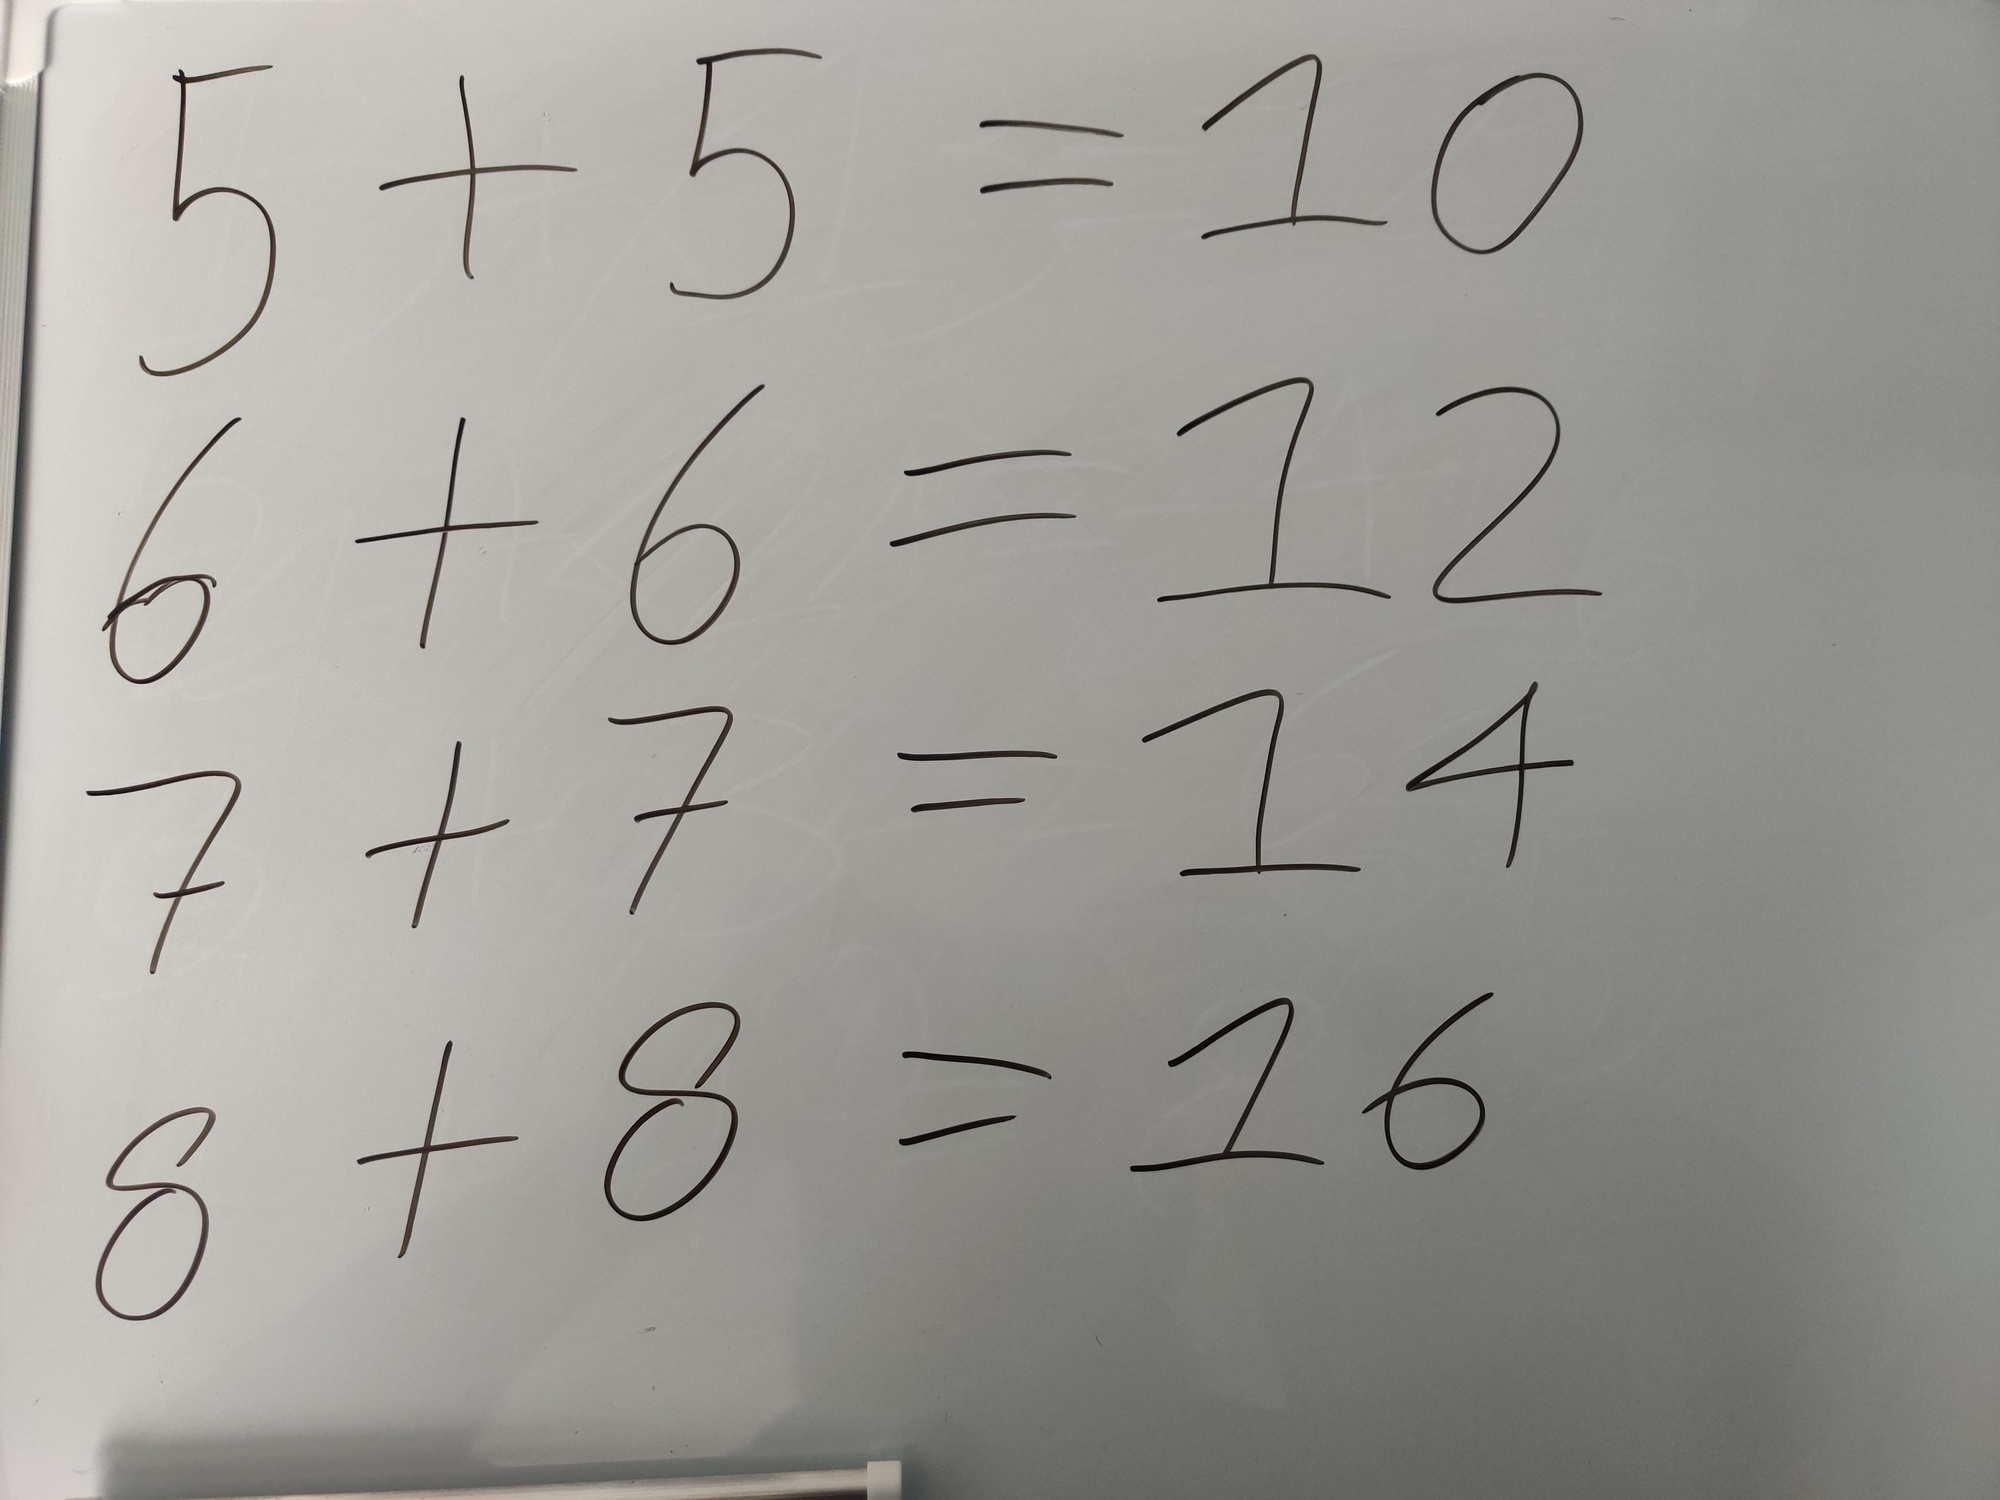 5 + 5 = 10
6 + 6 = 12
7 + 7 = 14
8 + 8 = 16